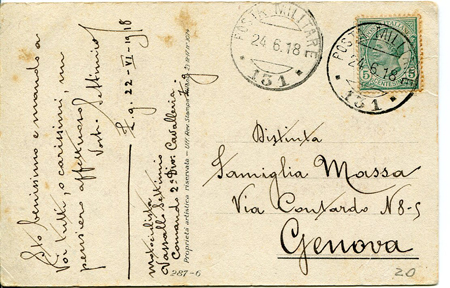 Sto benissimo e mando a
Voi tutti, o carissimi, un
pensiero affettuoso
Vostro Settimio
Z.g. 22-VI-1918
motociclista
Vassallo Settimio
Comando 2ª Div. Cavalleria
Z.g.
287-6
Proprietà artistica riservata - Uff. Rev. Stampa
POSTA MILITARE
24.6.18
* 151 *
POSTA MILITARE
24.6.18
* 151 *
5
Distinta
Famiglia Massa
Via Contardo N 8-5
Genova
20